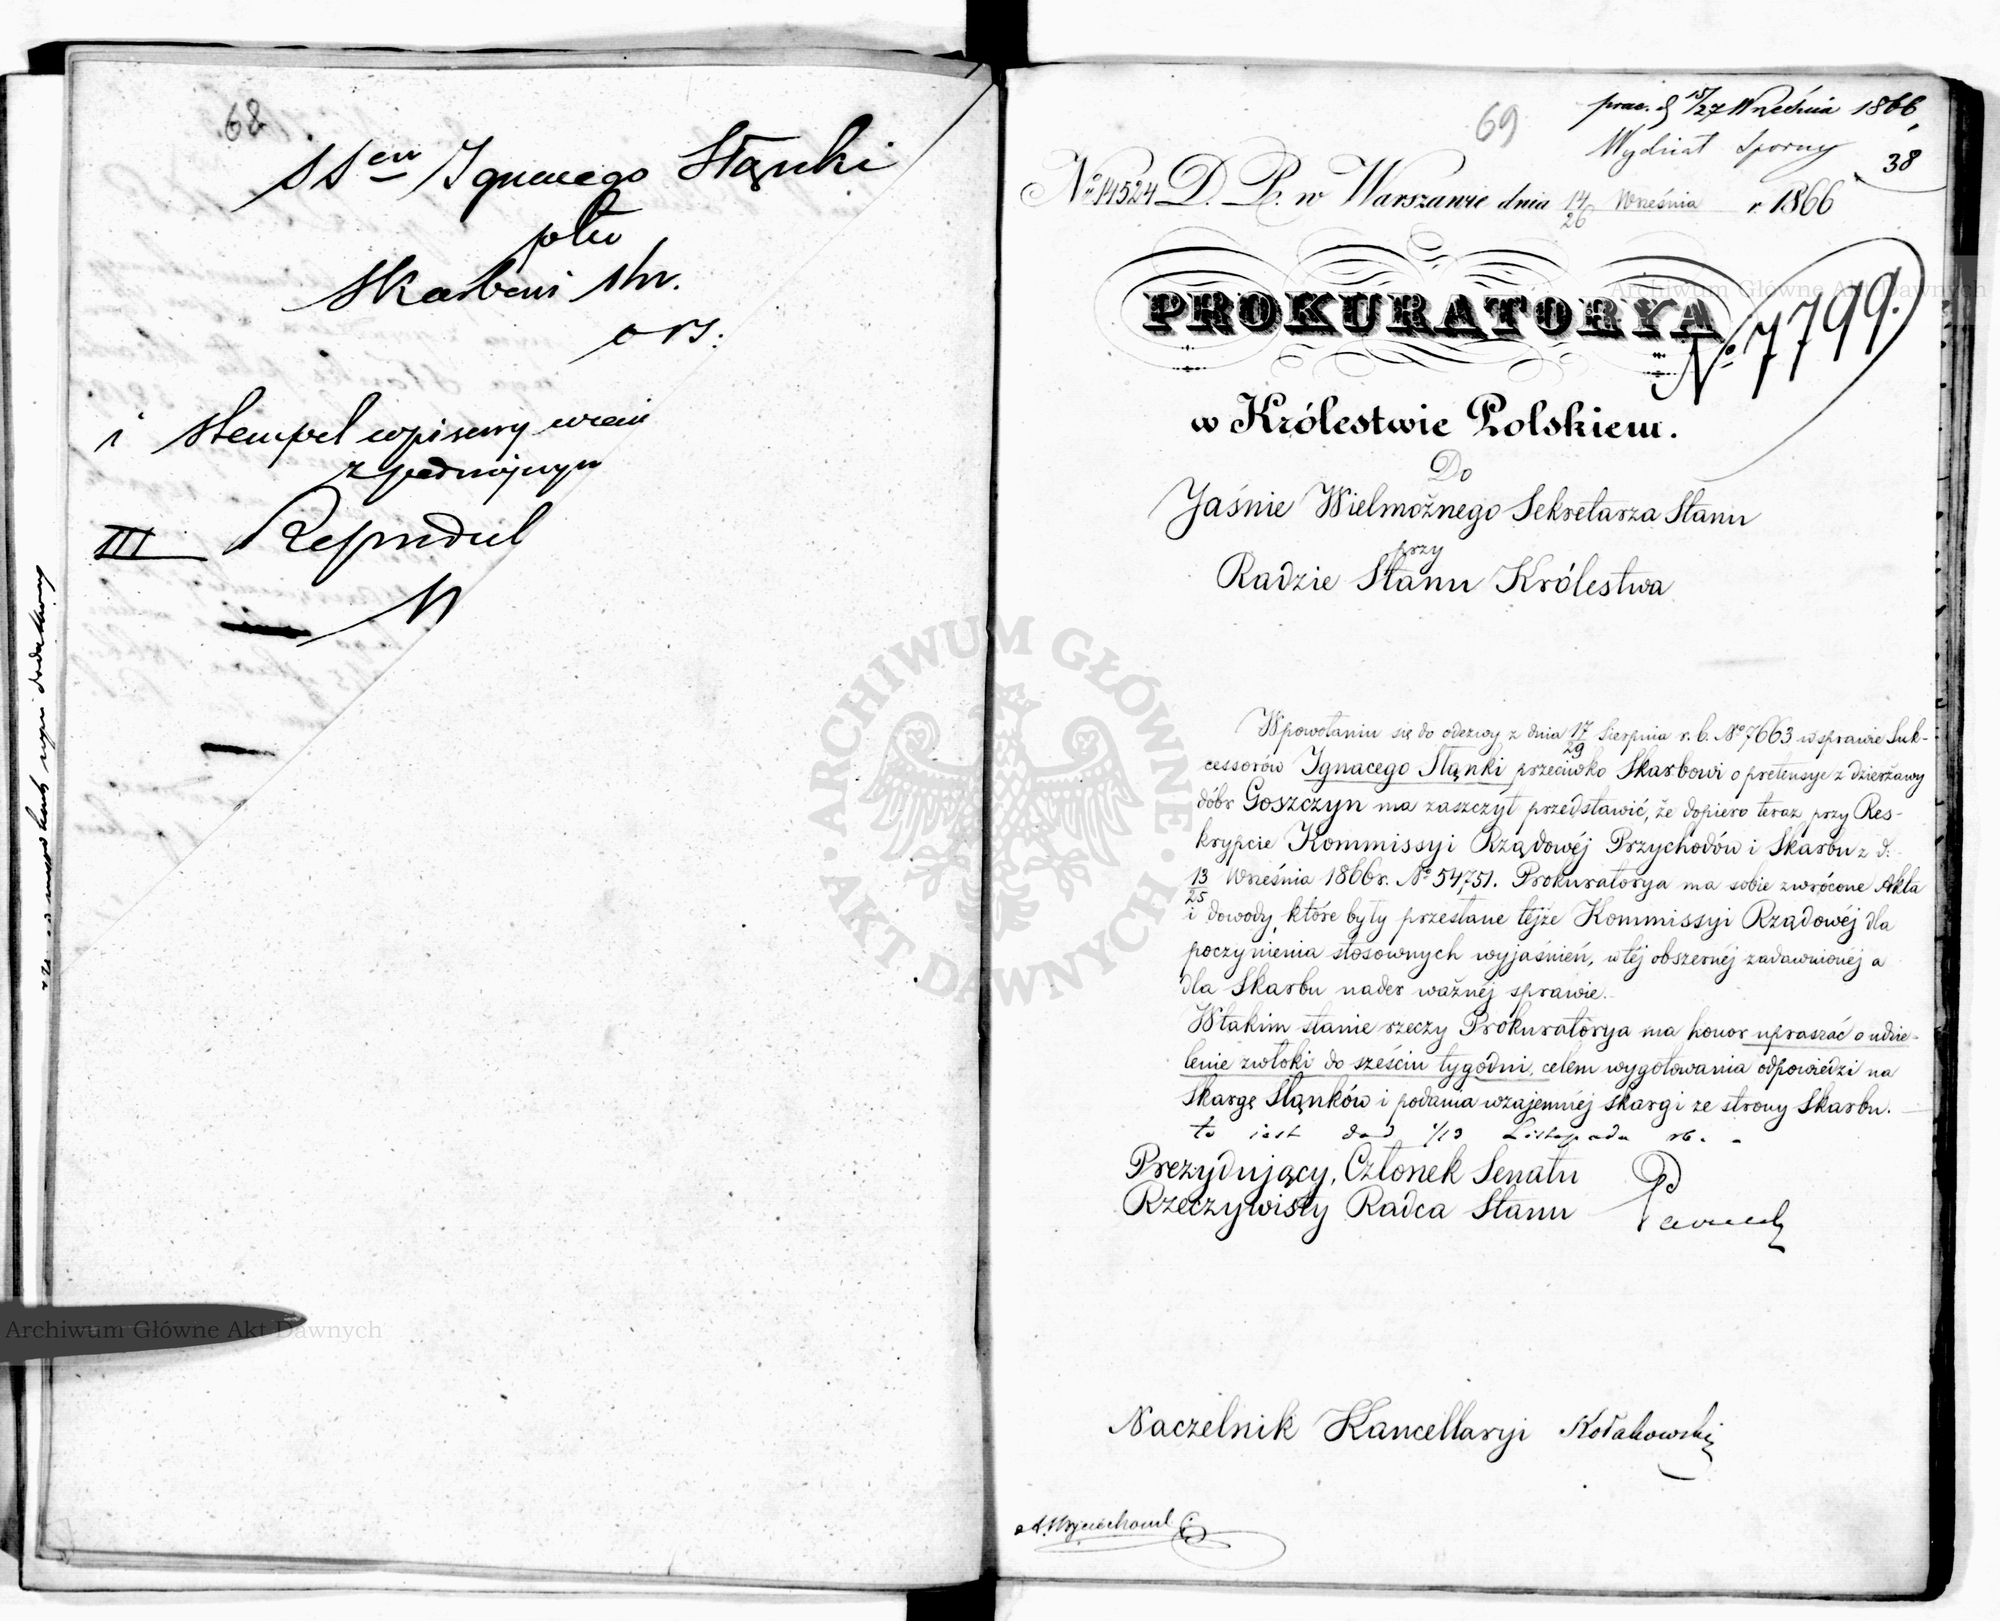 68
SSen Ignacego Słąnki
ptko
Skarbowi
i stempel wpisowy wraz
z podwójnym
III
69
15/27 Września 1866
Wydział Sporny
38
No 14524 D. P. w Warszawie dnia 14/26 Września r. 1866
PROKURATORYA
No 7799.
w Królestwie Polskiem.
Do
Jaśnie Wielmożnego Sekretarza Stanu
przy
Radzie Stanu Królestwa
W powołaniu się do odezwy z dnia 17/29 Sierpnia r. b. No 7663 w sprawie Suk-
cessorów Ignacego Słąnki przeciwko Skarbowi o pretensye z dzierżawy
dóbr Goszczyn ma zaszczyt przedstawić, że dopiero teraz przy Res-
krypcie Kommissyi Rządowéj Przychodów i Skarbu z d.
13/25 Września 1866 r. No 54,751. Prokuratorya ma sobie zwrócone Akta
i dowody, które były przesłane téjże Kommissyi Rządowéj dla
poczynienia stosownych wyjaśnień, w téj obszernéj zadawnionéj a
dla Skarbu nader ważnéj sprawie.
W takim stanie rzeczy Prokuratorya ma honor upraszać o udzie-
lenie zwłoki do sześciu tygodni, celem wygotowania odpowiedzi na
Skargę Słąnków i podania wzajemnéj skargi ze strony Skarbu.
to jest do d 1/13 Listopada rb.
Prezydujący, Członek Senatu
Rzeczywisty Radca Stanu
Naczelnik Kancellaryi Kołakowski
Archiwum Główne Akt Dawnych
Archiwum Główne Akt Dawnych
ARCHIWUM GŁÓWNE
AKT DAWNYCH